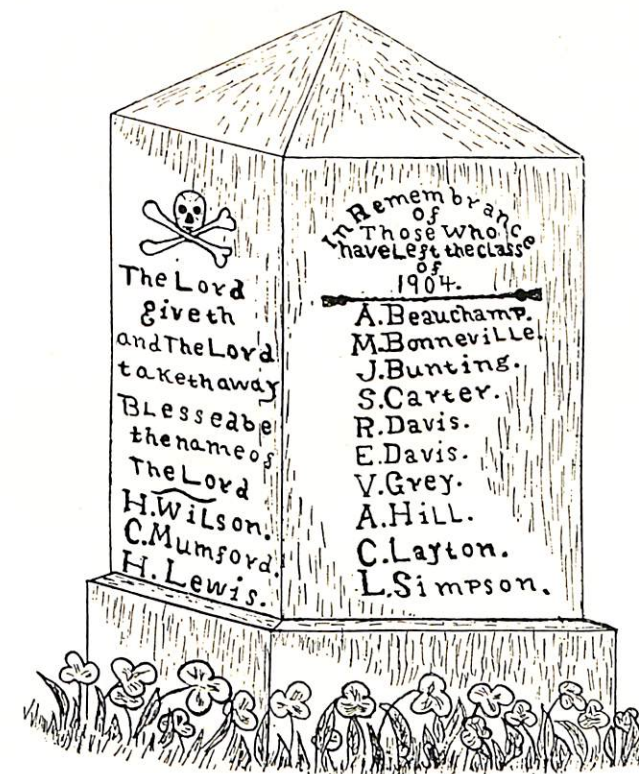 The Lord
giveth
and The Lord
taketh away
Blessed be
the name of
The Lord
H. Wilson.
C. Mumford.
H. Lewis.
In Remembrance
of
Those Who
have Left the Class
of
1904.
A. Beauchamp.
M. Bonneville.
J. Bunting.
S. Carter.
R. Davis.
E. Davis.
V. Grey.
A. Hill.
C. Layton.
L. Simpson.